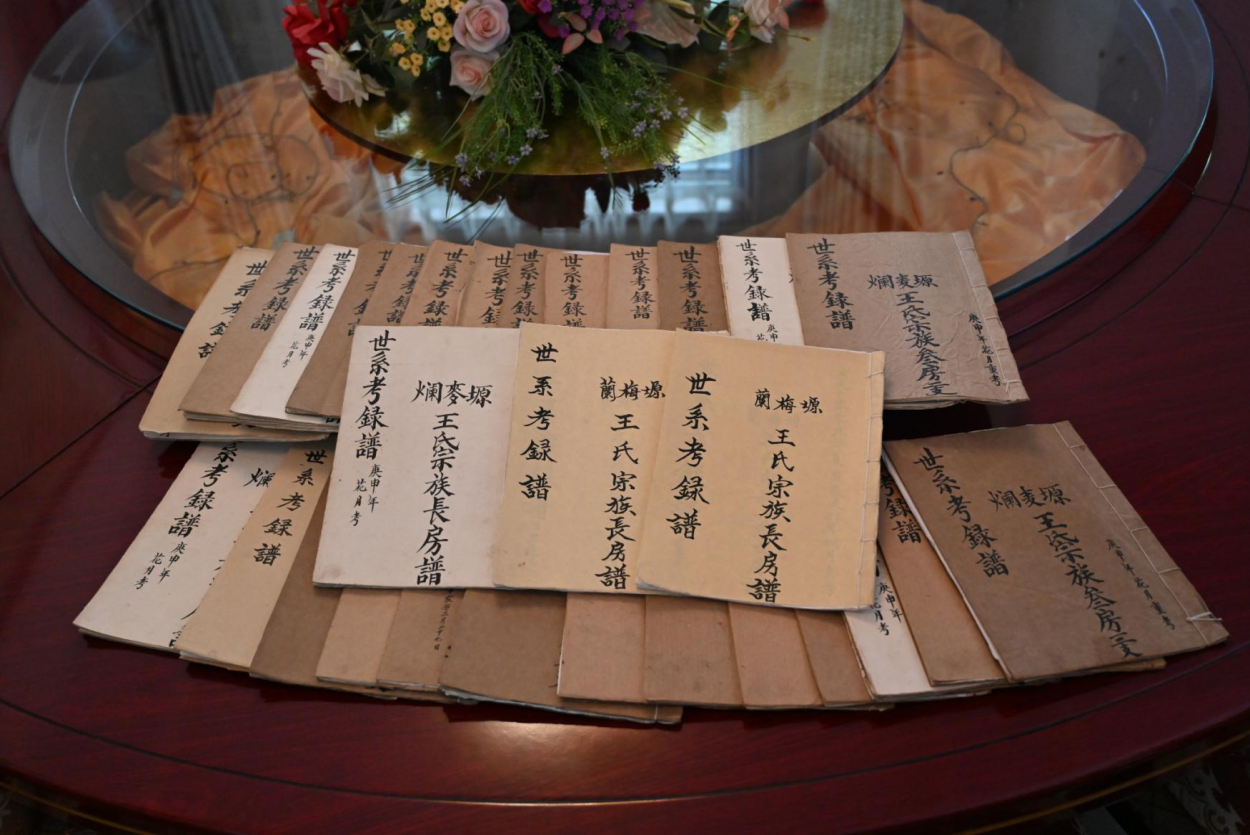 世系考録譜
世系考録譜
世系考録譜
庚申年
花月考
世系考録譜
世系考録譜
世系考録譜
世系考録譜
世系考録譜
世系考録譜
世系考録譜
世系考録譜
世系考録譜
庚申年
世系考録譜
爛麦塬
王氏宗族叁房
庚申年花月
世系考録譜
庚申年
花月考
爛麥塬
王氏宗族長房譜
世系考録譜
蘭梅塬
王氏宗族長房譜
世系考録譜
蘭梅塬
王氏宗族長房譜
系考録譜
庚申年
花月考
世系考録譜
庚申年
花月考
世系考録譜
爛麦塬
王氏宗族叁房
庚申年花月